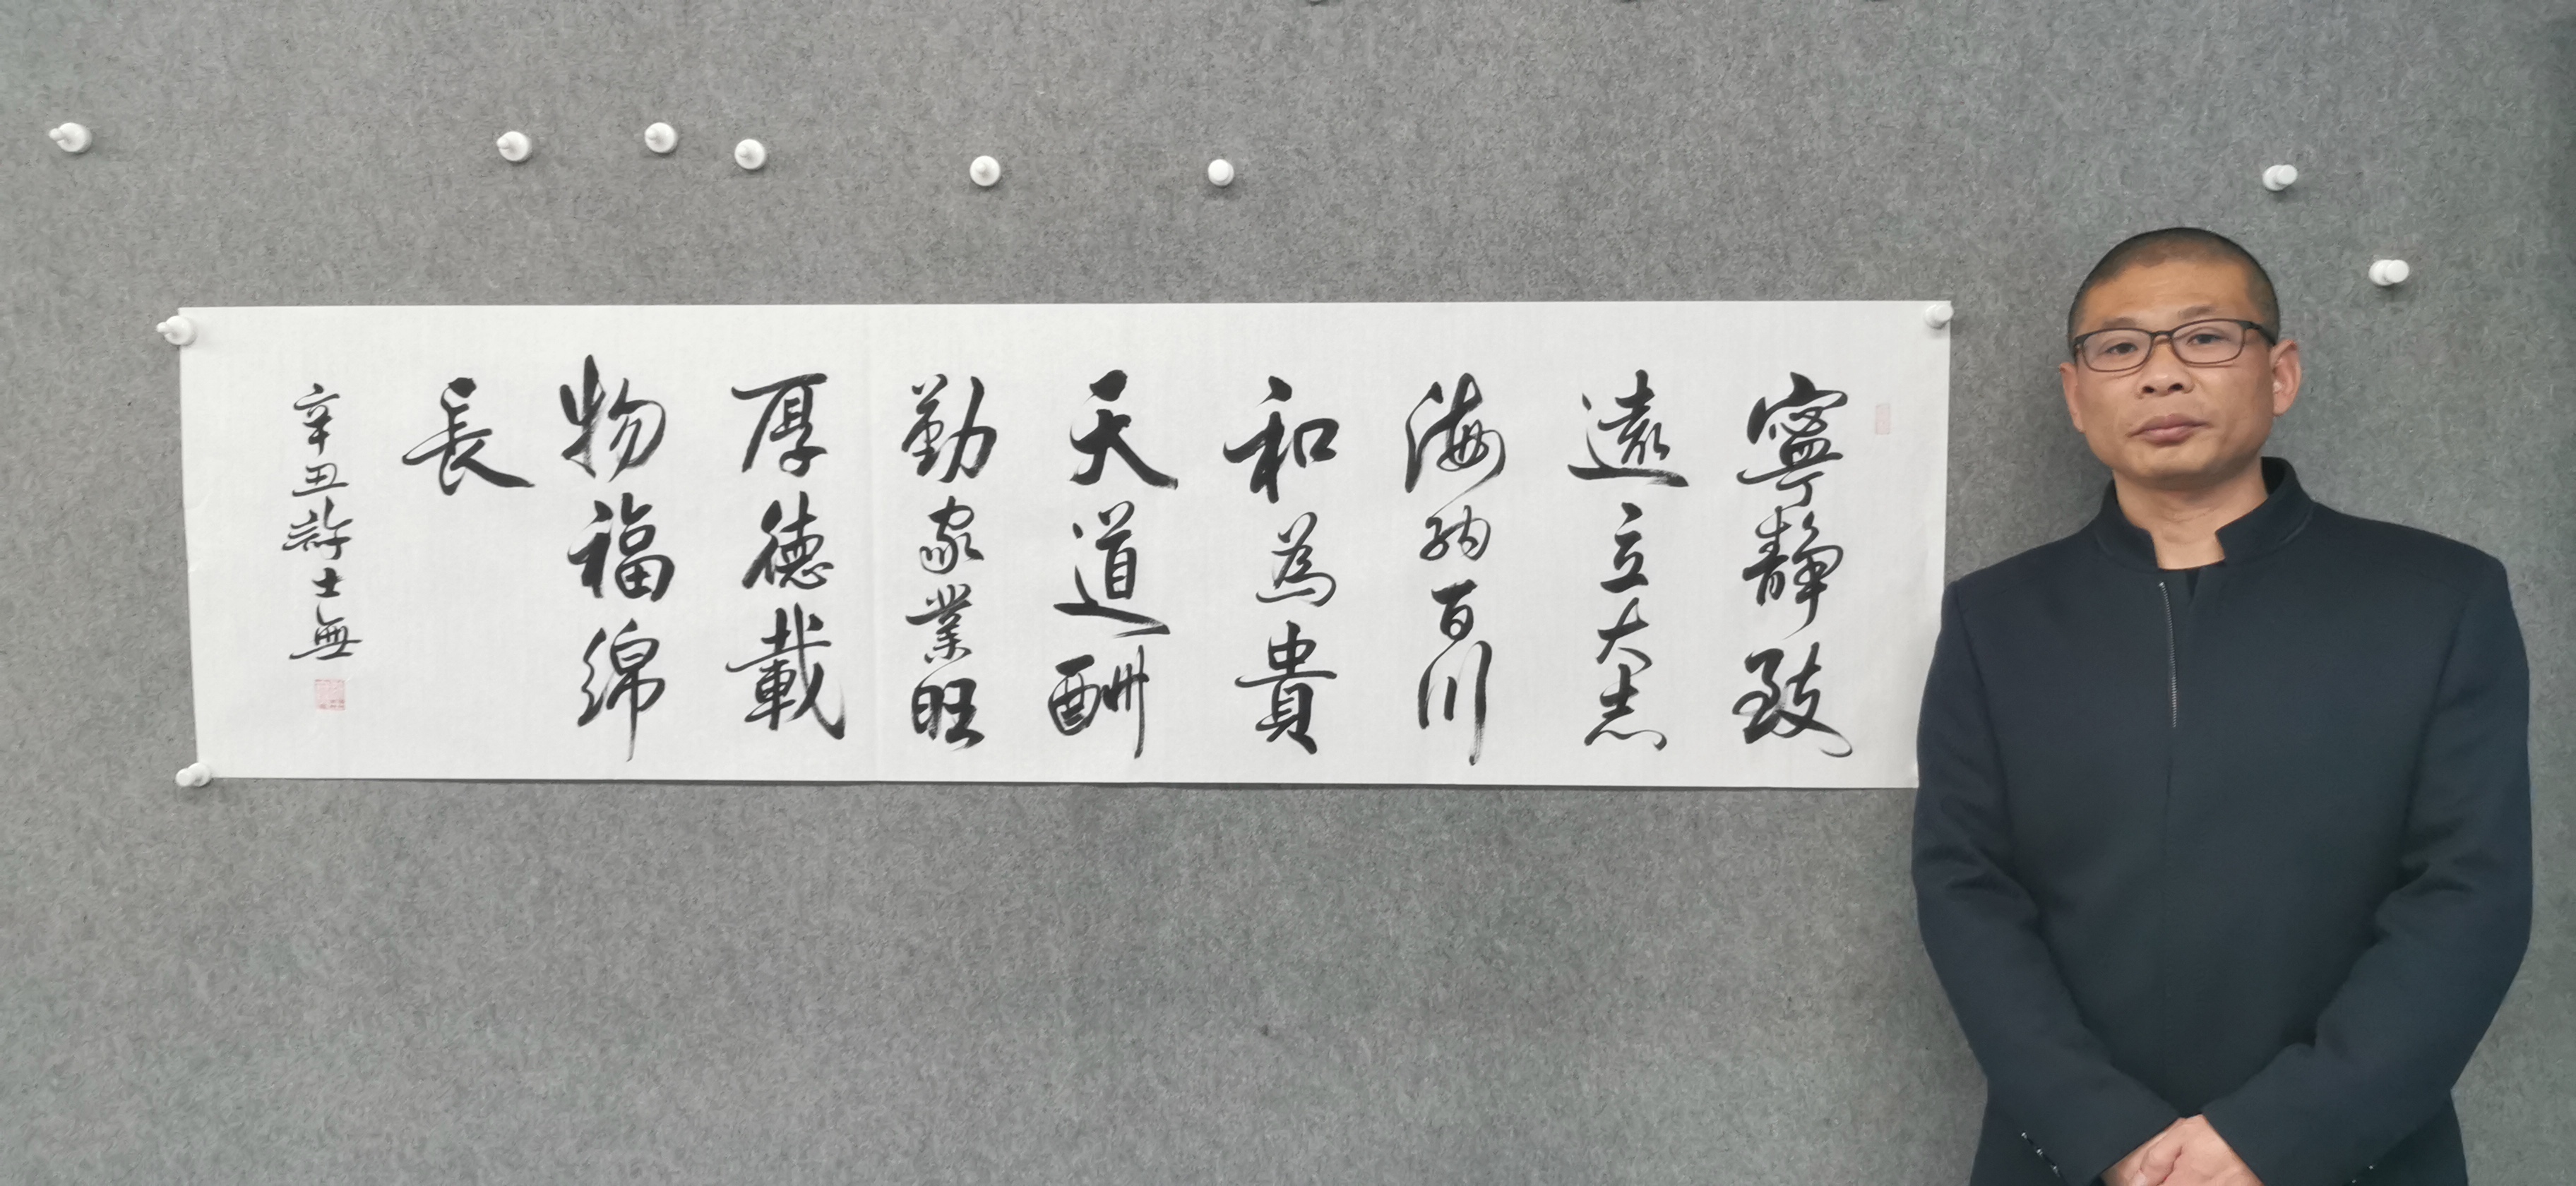 寧靜致
遠立大志
海納百川
和為貴
天道酬
勤家業旺
厚德載
物福綿
長
辛丑許士無